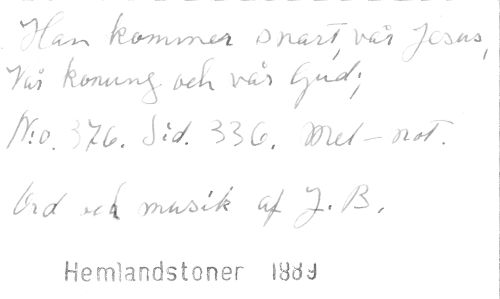 Han kommer snart, vår Jesus,
Vår konung och vår Gud;
N:o. 376. Sid. 336. Med-not.
Ord och musik af J. B.
Hemlandstoner 1889